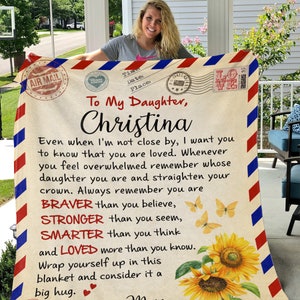 AIR MAIL
To My Daughter,
Christina
Even when I'm not close by, I want you
to know that you are loved. Whenever
you feel overwhelmed remember whose
daughter you are and straighten your
crown. Always remember you are
BRAVER than you believe,
STRONGER than you seem,
SMARTER than you think
and LOVED more than you know.
Wrap yourself up in this
blanket and consider it a
big hug.